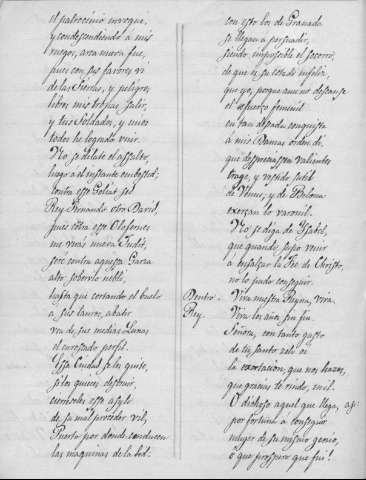 el patrocinio invoqué,
y condescendiendo a mis
ruegos, arca mera fue,
pues con sus favores vi
de las fieras, y peligros
libres mis tropas, salir,
y tus Soldados, y mios
todos he logrado unir.
No, se dilate el assalto,
luego al instante embestid;
contra esse Goliat sed
Rey Fernando otro David,
pues contra esse Olofernes
me veras nueva Judit,
seré contra aquessa Garza
alto, soberbio neblí,
hasta que cortando el buelo
a sus lauros, abatir
vea de sus medias Lunas
el enroscado perfil.
Essa Ciudad se les quite,
si les quieres destruir,
quitesseles esse asylo
de su mal proceder vil,
Puerta por donde conducen
las maquinas de la lid.
con esto los de Granada
se llegan a persuadir,
siendo imposible el socorro,
de que es su estado infeliz,
que yo, porque aun no descanse
el esfuerzo femenil
en tan deseada conquista
á mis Damas ordené,
que despreciassen valientes
trage, y vestido sutil
de Venus, y de Belona
exerzan lo varonil.
No, se diga de Ysabel,
que quando, supo venir
á ensalzar la Feé de Christo,
no la pudo conseguir.
Dentro. Viva nuestra Reyna, viva,
Rey. Viva los años sin fin.
Señora, con tanto gusto
de tu santo zelo oi
la exortacion, que nos hazes,
que gracias te rindo, en el.
O dichoso aquel que llega, ap.
por fortuna á conseguir
muger de su mismo genio,
ó que prospero que fui!